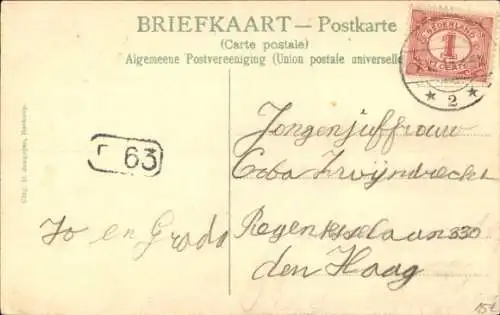 BRIEFKAART — Postkarte
(Carte postale)
Algemeene Postvereeniging (Union postale universelle
NEDERLAND
1
CENT
* 2 *
63
Jongenjuffrouw
Coba Zwijndrecht
330
den Haag
Jo en Grada